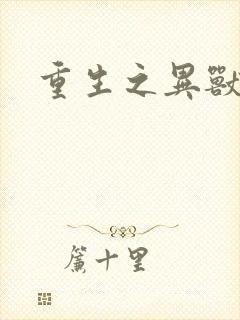 重生之異獸
簾十里